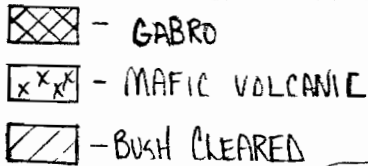 - GABRO
x x x x - MAFIC VOLCANIC
- BUSH CLEARED